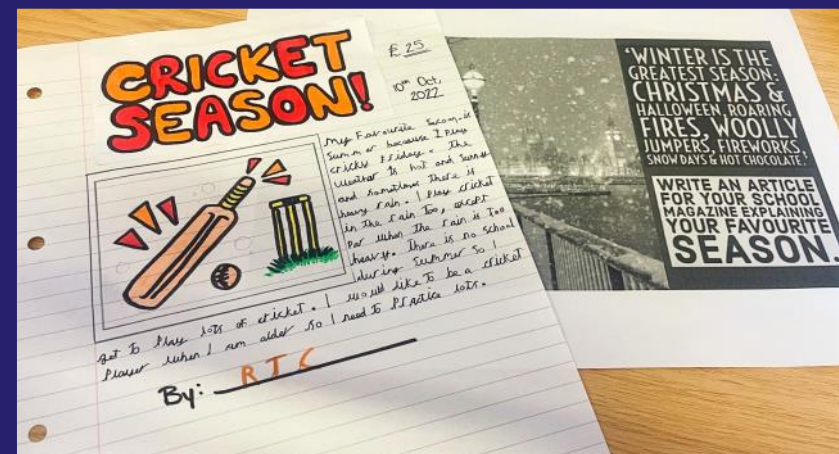 CRICKET
SEASON!
£ 25
10th Oct,
2022
My Favourite Season is
Summer because I Play
cricket Friday. The
Weather is hot and Sunny
and Sometimes there is
heavy rain. I Play cricket
in the rain too, except
for when the rain is Too
heavy. There is no School
during Summer So I
get to Play lots of cricket. I would like to be a cricket
Player when I am older So I need to Practice lots.
By: RTC
'WINTER IS THE
GREATEST SEASON:
CHRISTMAS &
HALLOWEEN, ROARING
FIRES, WOOLLY
JUMPERS, FIREWORKS,
SNOW DAYS & HOT CHOCOLATE.'
WRITE AN ARTICLE
FOR YOUR SCHOOL
MAGAZINE EXPLAINING
YOUR FAVOURITE
SEASON.